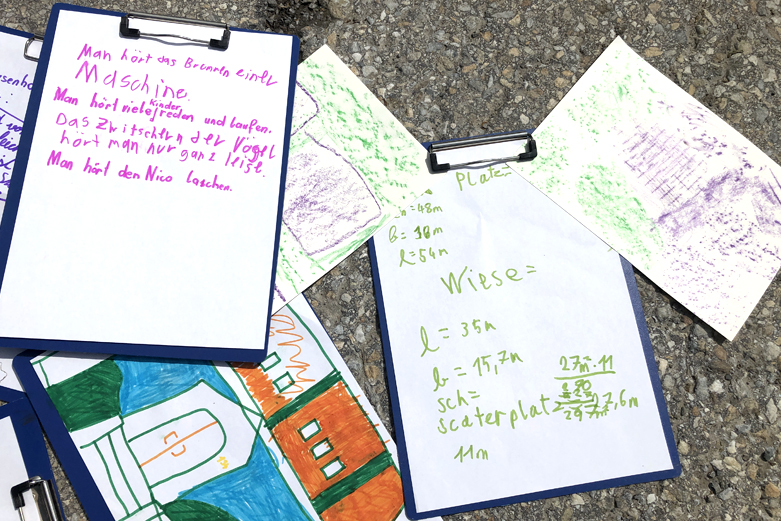 Man hört das Brummen einer
Maschine.
Man hört viele Kinder reden und laufen.
Das Zwitschern der Vögel
hört man nur ganz leise.
Man hört den Nico laschen.
Plate=
=48m
b=
l=54m
Wiese=
l= 35m
b= 15,7m
sch=
scaterplat
27,6m
11m
27m·11